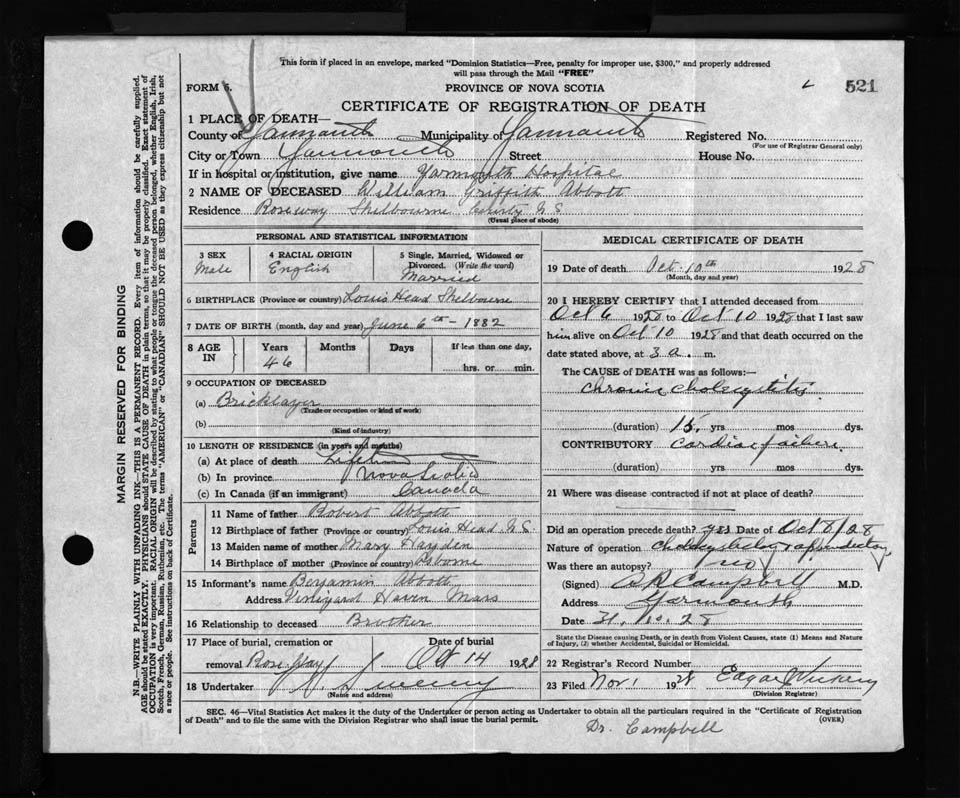 This form if placed in an envelope, marked "Dominion Statistics—Free, penalty for improper use, $300," and properly addressed
will pass through the Mail "FREE"
FORM 6. PROVINCE OF NOVA SCOTIA 521
CERTIFICATE OF REGISTRATION OF DEATH
1 PLACE OF DEATH—
County of Yarmouth Municipality of Yarmouth Registered No.
(For use of Registrar General only)
City or Town Yarmouth Street House No.
If in hospital or institution, give name Yarmouth Hospital
2 NAME OF DECEASED William Griffith Abbott
Residence Roseway Shelbourne County N S
(Usual place of abode)
PERSONAL AND STATISTICAL INFORMATION
3 SEX 4 RACIAL ORIGIN 5 Single, Married, Widowed or
Divorced. (Write the word)
Male English Married
6 BIRTHPLACE (Province or country) Louis Head Shelbourne
7 DATE OF BIRTH (month, day and year) June 6th - 1882
8 AGE IN Years Months Days If less than one day,
46 hrs. or min.
9 OCCUPATION OF DECEASED
(a) Bricklayer
(Trade or occupation or kind of work)
(b)
(Kind of industry)
10 LENGTH OF RESIDENCE (in years and months)
(a) At place of death
(b) In province Nova Scotia
(c) In Canada (if an immigrant) Canada
Parents
11 Name of father Robert Abbott
12 Birthplace of father (Province or country) Louis Head N.S.
13 Maiden name of mother Mary Hayden
14 Birthplace of mother (Province or country) Osborne
15 Informant's name Benjamin Abbott
Address Vinliyard Haven Mars
16 Relationship to deceased Brother
17 Place of burial, cremation or Date of burial
removal Roseway Oct 14 1928
18 Undertaker Sweeny
(Name and address)
MEDICAL CERTIFICATE OF DEATH
19 Date of death Oct. 10th 1928
(Month, day and year)
20 I HEREBY CERTIFY that I attended deceased from
Oct 6 1928 to Oct 10 1928 that I last saw
him alive on Oct 10 1928 and that death occurred on the
date stated above, at 3 a. m.
The CAUSE of DEATH was as follows:—
Chronic Cholecystitis
(duration) 15. yrs mos dys.
CONTRIBUTORY Cardiac failure
(duration) yrs mos dys.
21 Where was disease contracted if not at place of death?
Did an operation precede death? yes Date of Oct 8/28
Nature of operation
Was there an autopsy? no
(Signed) Campbell M.D.
Address Yarmouth
Date 31. 10. 28
State the Disease causing Death, or in death from Violent Causes, state (1) Means and Nature
of Injury, (2) whether Accidental, Suicidal or Homicidal.
22 Registrar's Record Number
23 Filed Nov 1 1928 Edgar
(Division Registrar)
SEC. 46—Vital Statistics Act makes it the duty of the Undertaker or person acting as Undertaker to obtain all the particulars required in the "Certificate of Registration
of Death" and to file the same with the Division Registrar who shall issue the burial permit. (OVER)
Dr. Campbell
MARGIN RESERVED FOR BINDING
N.B.—WRITE PLAINLY WITH UNFADING INK—THIS IS A PERMANENT RECORD. Every item of information should be carefully supplied.
AGE should be stated EXACTLY. PHYSICIANS should STATE CAUSE OF DEATH in plain terms, so that it may be properly classified. Exact statement of
OCCUPATION is very important. RACIAL ORIGIN will be described by stating to what people or tongue the deceased person belonged, whether English, Irish,
Scotch, French, German, Russian, Ruthenian, etc. The terms "AMERICAN" or "CANADIAN" SHOULD NOT BE USED as they express citizenship but not
a race or people. See instructions on back of Certificate.